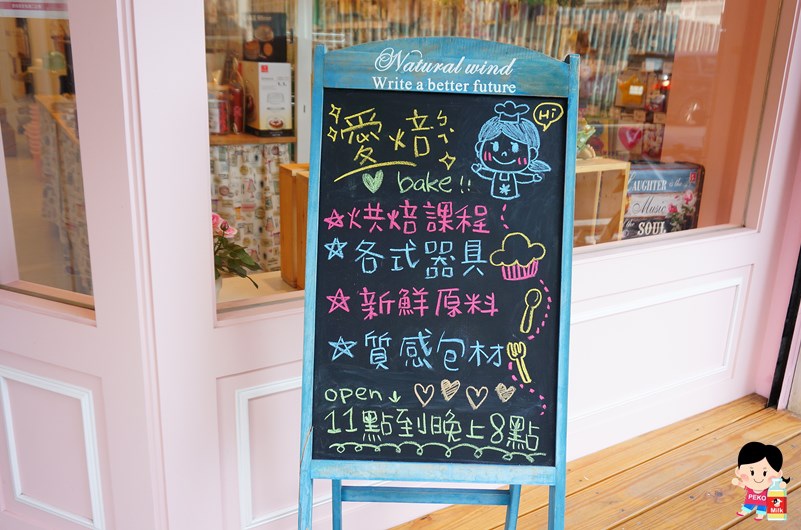 Natural wind
Write a better future
愛焙ㄅㄟˋ
Hi
bake!!
烘焙課程!
各式器具
新鮮原料
質感包材
open↓
11點到晚上8點
LAUGHTER is the
Music
SOUL
PEKO
Milk